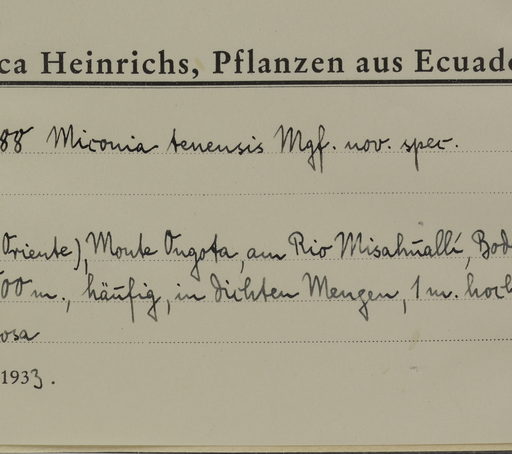 ca Heinrichs, Pflanzen aus Ecuado
88 Miconia tenensis Mgf. nov. spec.
Oriente), Monte Ongota, am Rio Misahuallí, Bod
00 m., häufig, in dichten Mengen, 1 m. hoch
osa
1933.